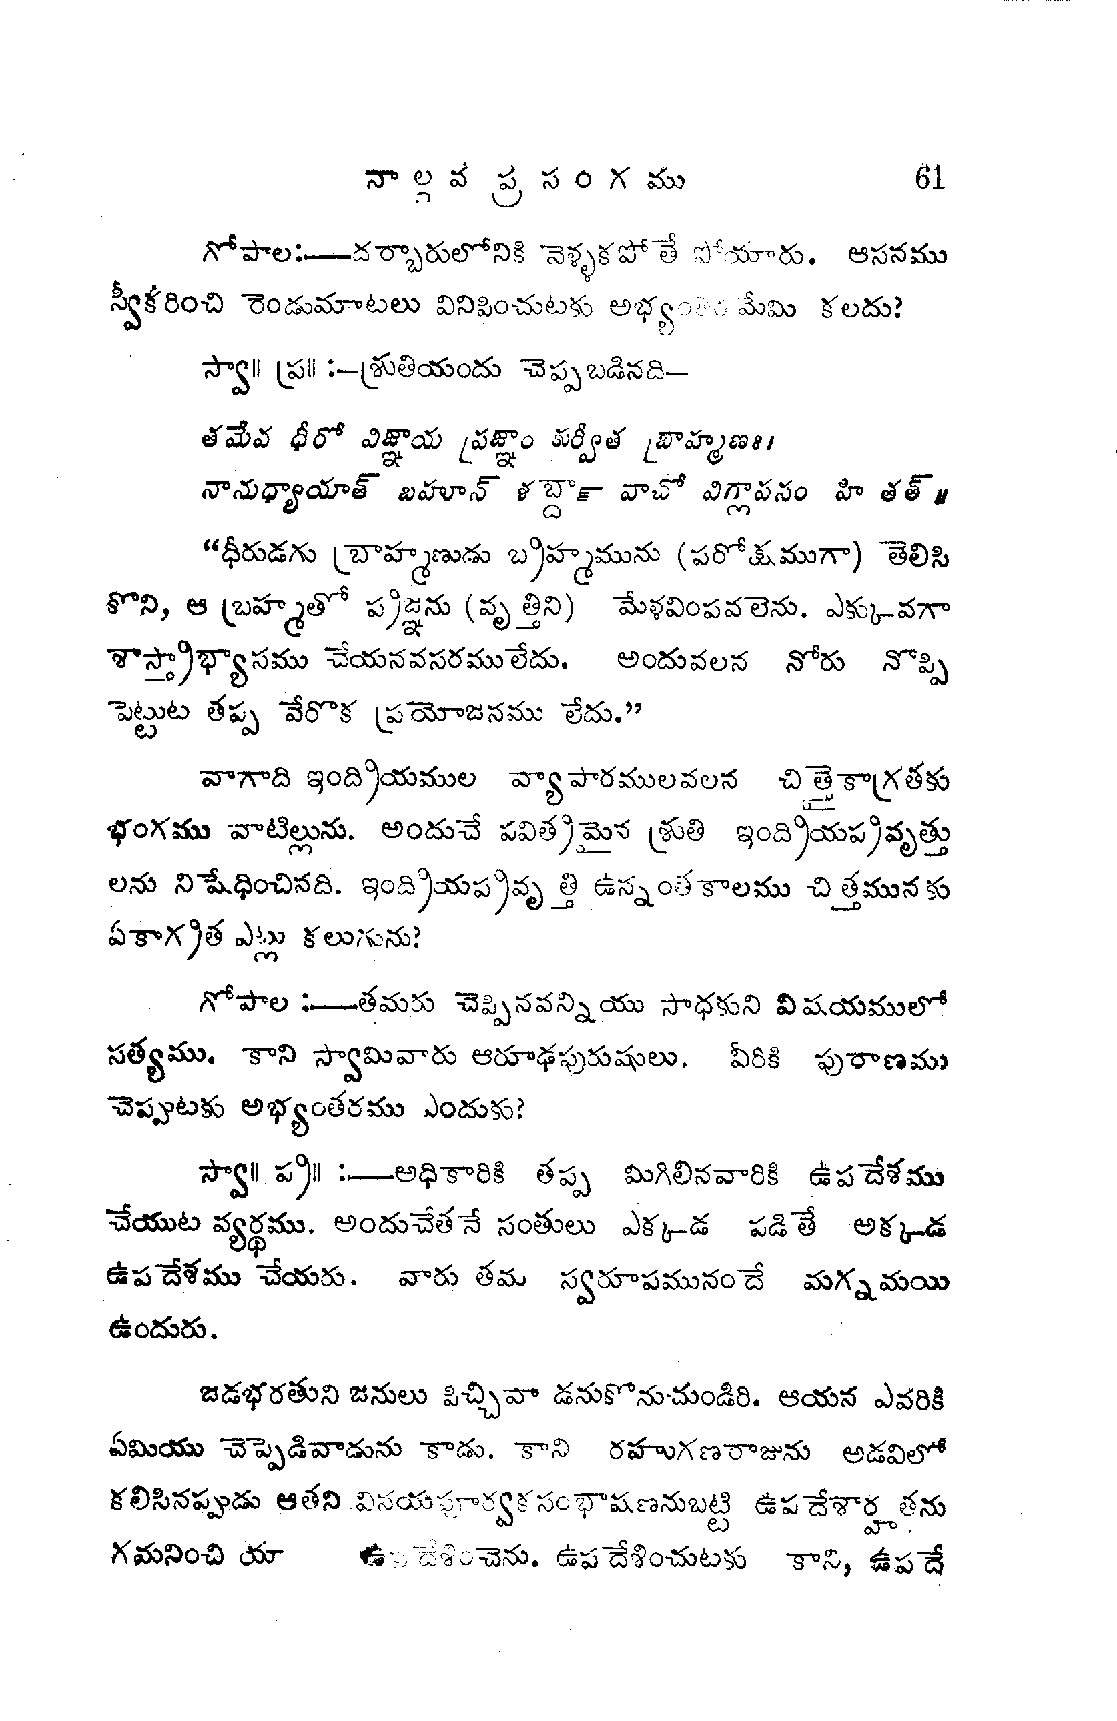 నాల్గవ ప్రసంగము 61
గోపాల:—దర్బారులోనికి నెళ్ళకపోతే పోయారు. ఆసనము
స్వీకరించి రెండుమాటలు వినిపించుటకు అభ్యంతరమేమి కలదు?
స్వా॥ ప్ర॥ :—శ్రుతియందు చెప్పబడినది—
తమేవ ధీరో విజ్ఞాయ ప్రజ్ఞాం కుర్వీత బ్రాహ్మణః।
నానుధ్యాయాత్ బహూన్ శబ్దా౯ వాచో విగ్లాపనం హి తత్॥
“ధీరుడగు బ్రాహ్మణుడు బ్రహ్మమును (పరోక్షముగా) తెలిసి
కొని, ఆ బ్రహ్మతో ప్రజ్ఞను (వృత్తిని) మేళవింపవలెను. ఎక్కువగా
శాస్త్రాభ్యాసము చేయనవసరములేదు. అందువలన నోరు నొప్పి
పెట్టుట తప్ప వేరొక ప్రయోజనము లేదు.”
వాగాది ఇంద్రియముల వ్యాపారములవలన చిత్తైకాగ్రతకు
భంగము వాటిల్లును. అందుచే పవిత్రమైన శ్రుతి ఇంద్రియప్రవృత్తు
లను నిషేధించినది. ఇంద్రియప్రవృత్తి ఉన్నంతకాలము చిత్తమునకు
ఏకాగ్రత ఎట్లు కలుగును?
గోపాల :—తమరు చెప్పినవన్నియు సాధకుని విషయములో
సత్యము. కాని స్వామివారు ఆరూఢపురుషులు. వీరికి పురాణము
చెప్పుటకు అభ్యంతరము ఎందుకు?
స్వా॥ ప్ర॥ :—అధికారికి తప్ప మిగిలినవారికి ఉపదేశము
చేయుట వ్యర్థము. అందుచేతనే సంతులు ఎక్కడ పడితే అక్కడ
ఉపదేశము చేయరు. వారు తమ స్వరూపమునందే మగ్నమయి
ఉందురు.
జడభరతుని జనులు పిచ్చివా డనుకొనుచుండిరి. ఆయన ఎవరికి
ఏమియు చెప్పెడివాడును కాడు. కాని రహూగణరాజును అడవిలో
కలిసినప్పుడు ఆతని వినయపూర్వకసంభాషణనుబట్టి ఉపదేశార్హతను
గమనించి యా ఉపదేశించెను. ఉపదేశించుటకు కాని, ఉపదే